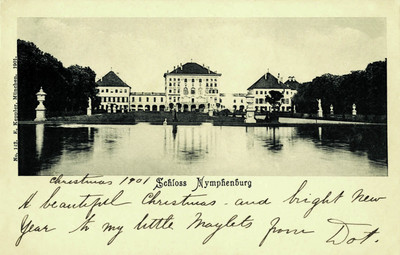 No. 115. F. München. 1901.
Schloss Nymphenburg
Christmas 1901
A beautiful Christmas - and bright New
Year to my little Maylets from Dot.